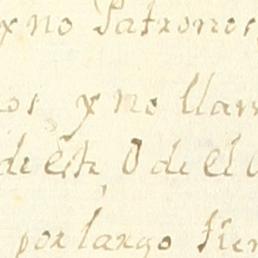 y no Patronos
os, y no llam
de este O de el
por largo tiem